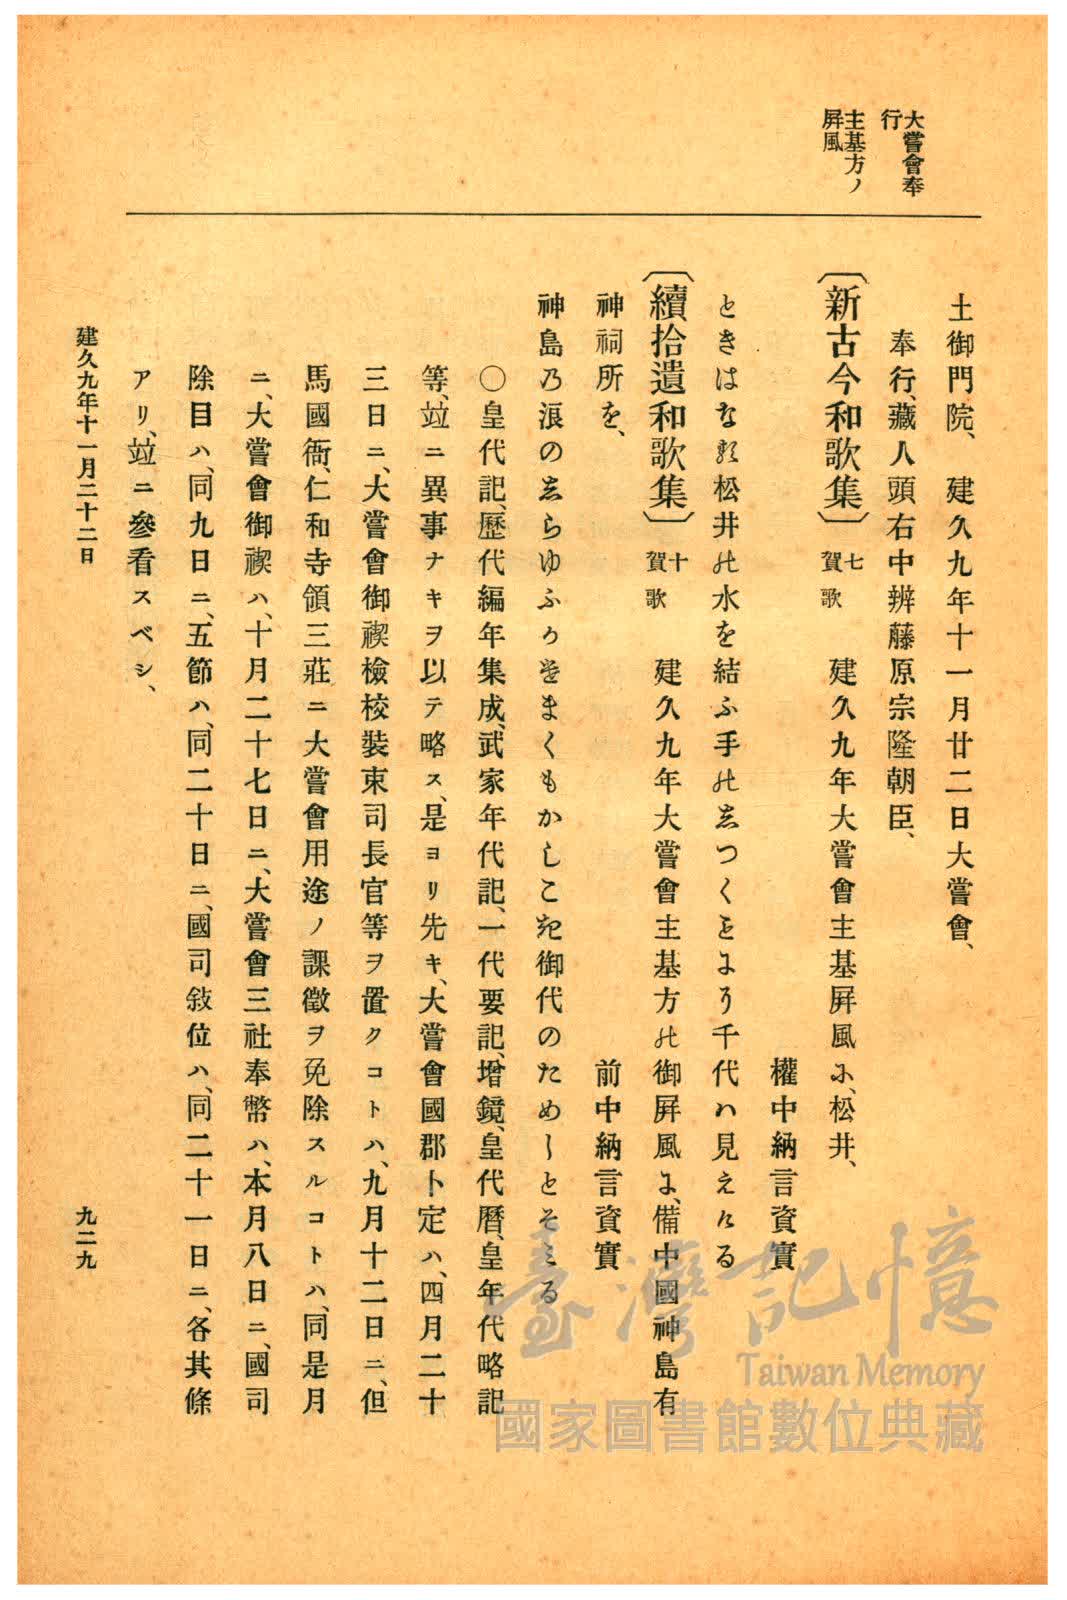 大嘗會奉
行
主基方ノ
屛風
土御門院、建久九年十一月廿二日大嘗會、
奉行、藏人頭右中辨藤原宗隆朝臣、
〔新古今和歌集〕七賀歌 建久九年大嘗會主基屛風に、松井、
權中納言資實
ときはなる松井の水を結ふ手のしつくことにそ千代ハ見えける
〔續拾遺和歌集〕十賀歌 建久九年大嘗會主基方の御屛風に、備中國神島有
神祠所を、
前中納言資實
神島乃浪のしらゆふかけまくもかしこき御代のためしとそみる
〇皇代記、歷代編年集成、武家年代記、一代要記、增鏡、皇代曆、皇年代略記
等、竝ニ異事ナキヲ以テ略ス、是ヨリ先キ、大嘗會國郡卜定ハ、四月二十
三日ニ、大嘗會御禊檢校裝束司長官等ヲ置クコトハ、九月十二日ニ、但
馬國衙、仁和寺領三莊ニ大嘗會用途ノ課徵ヲ免除スルコトハ、同是月
ニ、大嘗會御禊ハ、十月二十七日ニ、大嘗會三社奉幣ハ、本月八日ニ、國司
除目ハ、同九日ニ、五節ハ、同二十日ニ、國司敍位ハ、同二十一日ニ、各其條
アリ、竝ニ參看スベシ、
建久九年十一月二十二日
九二九
臺灣記憶
Taiwan Memory
國家圖書館數位典藏